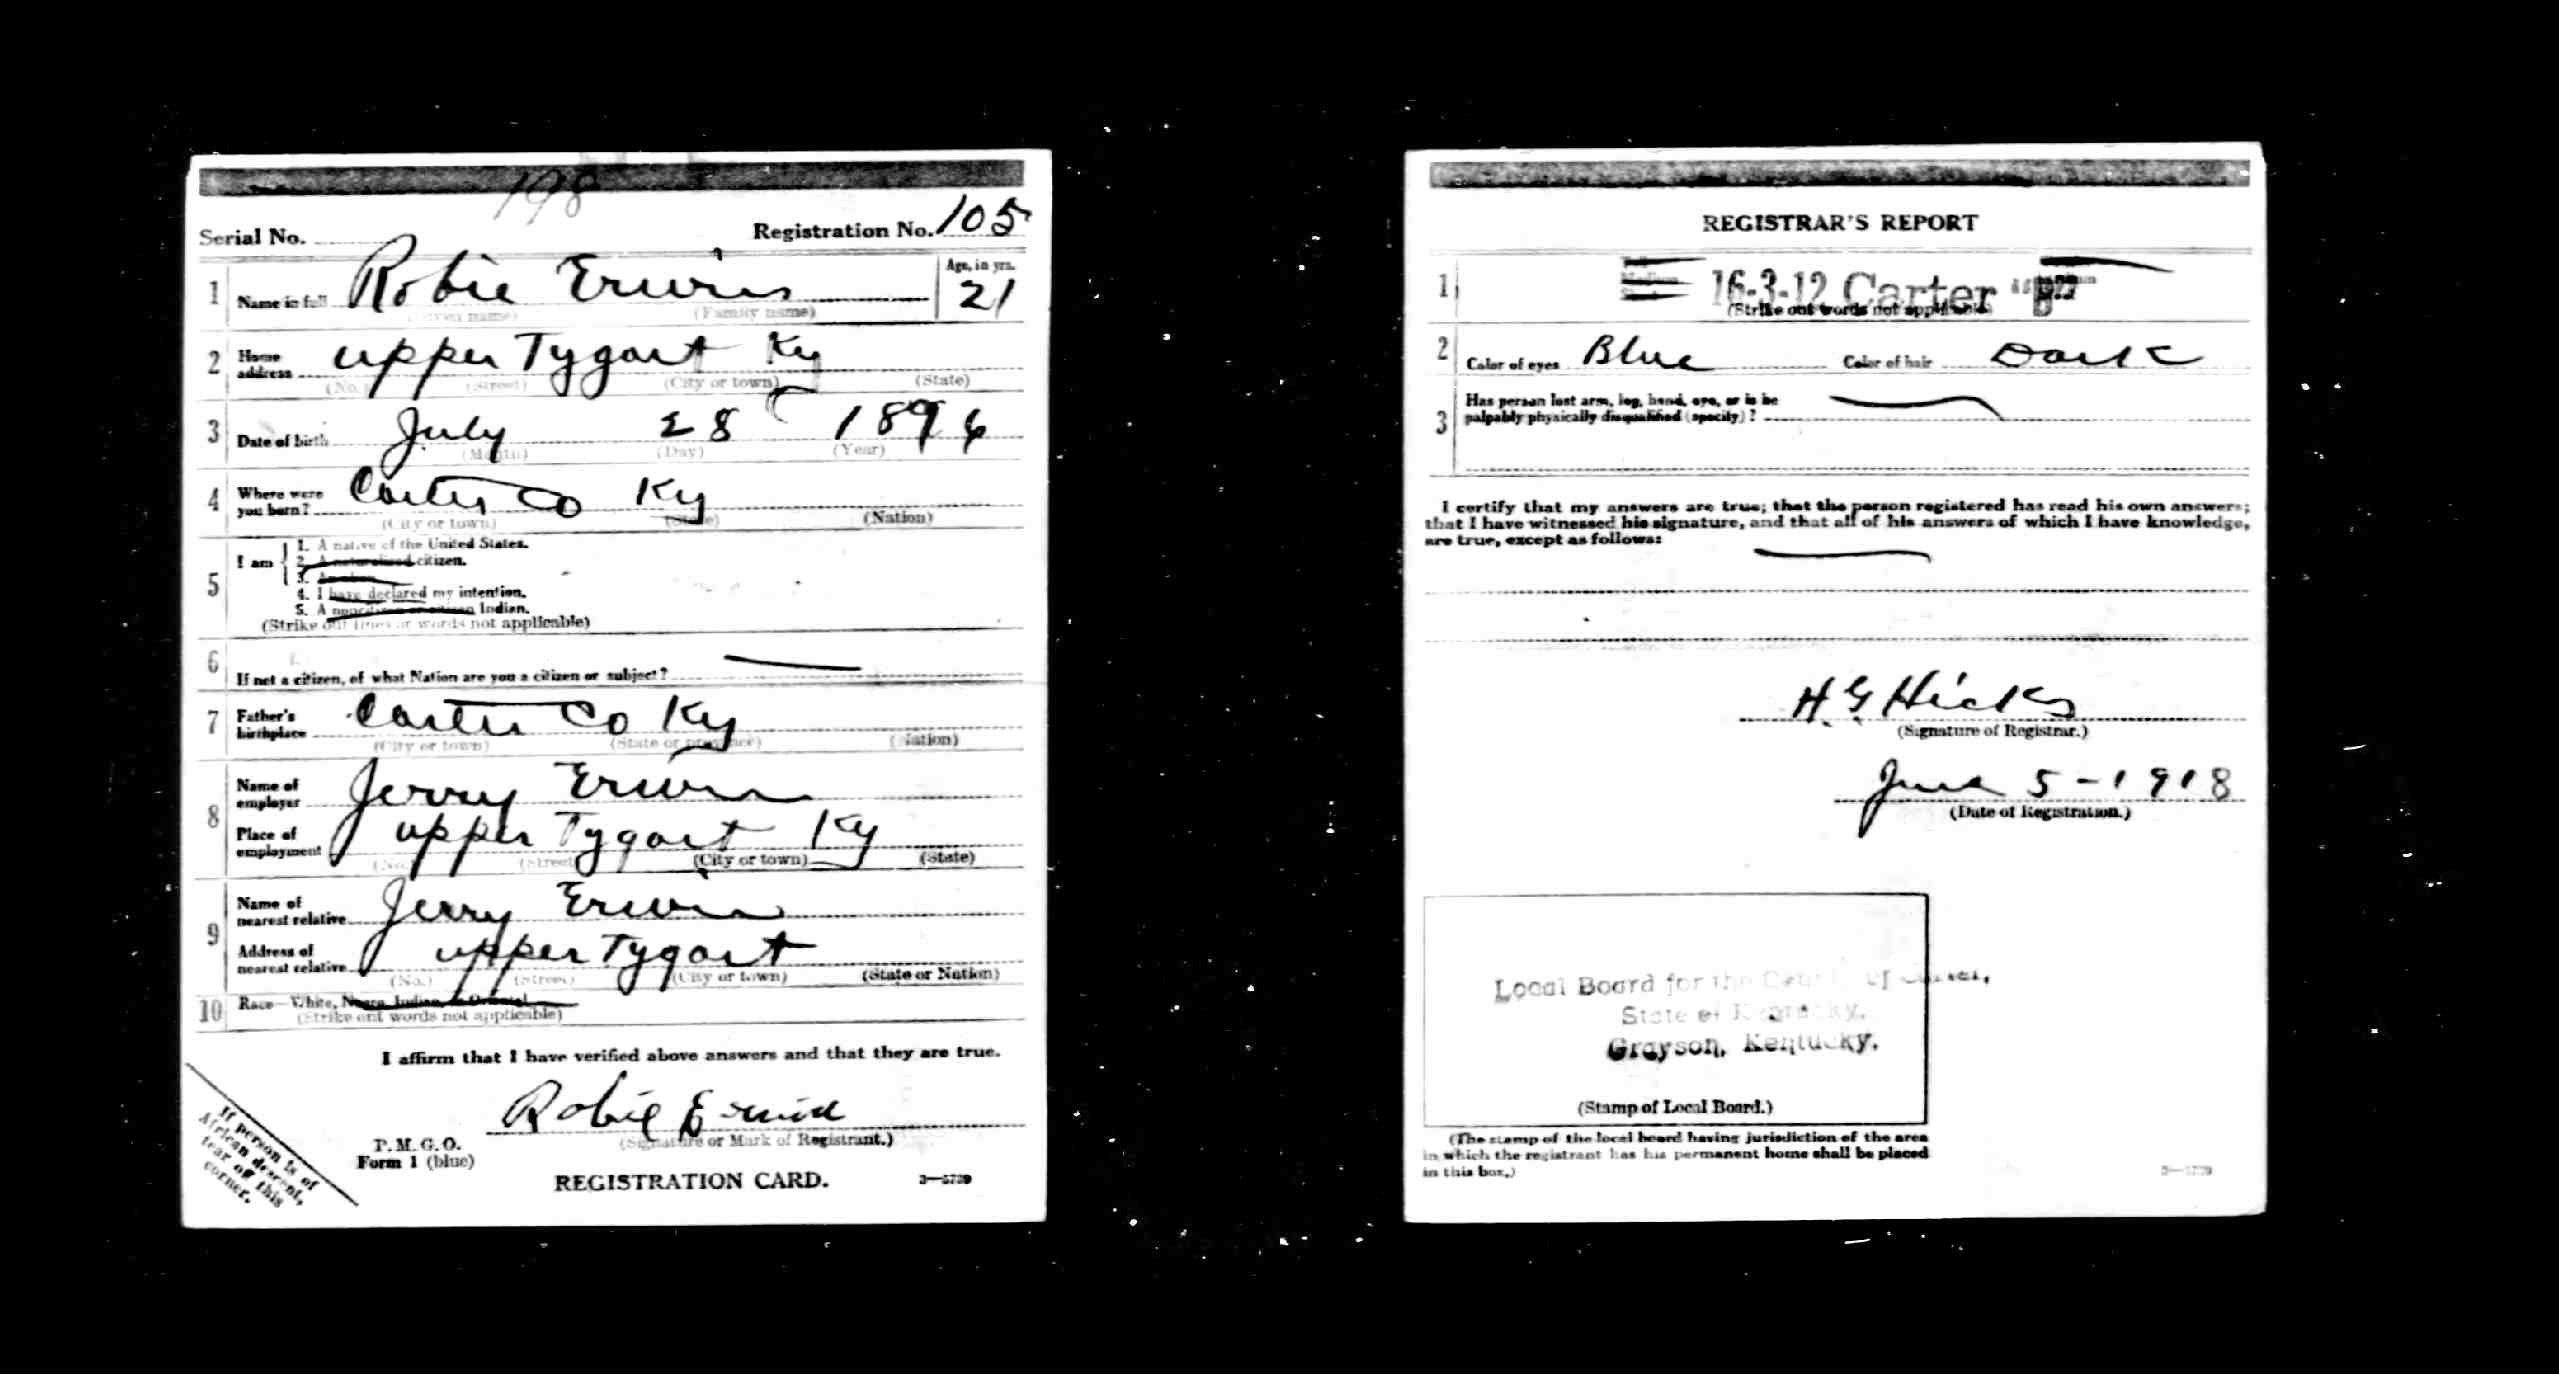 198
Serial No. Registration No. 105
1 Name in full Robie Erwin Age, in yrs. 21
(Given name) (Family name)
2 Home address upper Tygart Ky
(No.) (Street) (City or town) (State)
3 Date of birth July 28 1896
(Month) (Day) (Year)
4 Where were you born? Carter Co Ky
(City or town) (State) (Nation)
5 I am
1. A native of the United States.
2. A naturalized citizen.
3. An alien
4. I have declared my intention.
5. A noncitizen or citizen Indian.
(Strike out lines or words not applicable)
6 If not a citizen, of what Nation are you a citizen or subject?
7 Father's birthplace Carter Co Ky
(City or town) (State or province) (Nation)
8 Name of employer Jerry Erwin
Place of employment upper Tygart Ky
(No.) (Street) (City or town) (State)
9 Name of nearest relative Jerry Erwin
Address of nearest relative upper Tygart
(No.) (Street) (City or town) (State or Nation)
10 Race—White, Negro, Indian, or Oriental
(Strike out words not applicable)
I affirm that I have verified above answers and that they are true.
Robie Erwin
(Signature or Mark of Registrant.)
P. M. G. O.
Form 1 (blue)
REGISTRATION CARD. 3—5739
If person is of
African descent,
tear off this
corner.
REGISTRAR'S REPORT
1 16-3-12 Carter
(Strike out words not applicable)
2 Color of eyes Blue Color of hair Dark
3 Has person lost arm, leg, hand, eye, or is he
palpably physically disqualified (specify)?
I certify that my answers are true; that the person registered has read his own answers;
that I have witnessed his signature, and that all of his answers of which I have knowledge,
are true, except as follows:
H. G. Hicks
(Signature of Registrar.)
June 5-1918
(Date of Registration.)
Local Board for the County of Carter,
State of Kentucky,
Grayson, Kentucky.
(Stamp of Local Board.)
(The stamp of the local board having jurisdiction of the area
in which the registrant has his permanent home shall be placed
in this box.)
3—5739